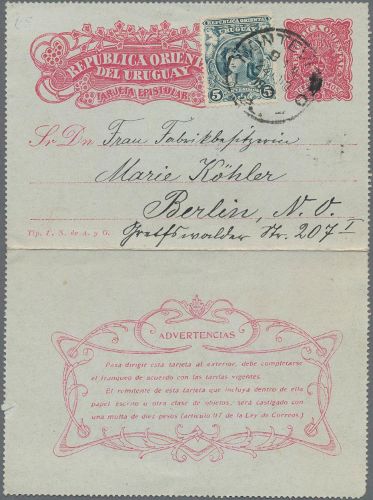 REPUBLICA ORIENTAL
DEL URUGUAY
TARJETA EPISTOLAR
REPUBLICA ORIENTAL
URUGUAY
5 5
MONTEVIDEO
Sr. Dn. Frau Fabrikbesitzerin
Marie Köhler
Berlin, N. O.
Greifswalder Str. 207 I
Tip. E. N. de A. y G.
ADVERTENCIAS
Para dirigir esta tarjeta al exterior, debe completarse
el franqueo de acuerdo con las tarifas vigentes.
El remitente de esta tarjeta que incluya dentro de ella
papel escrito u otra clase de objetos, será castigado con
una multa de diez pesos (artículo 117 de la Ley de Correos.)